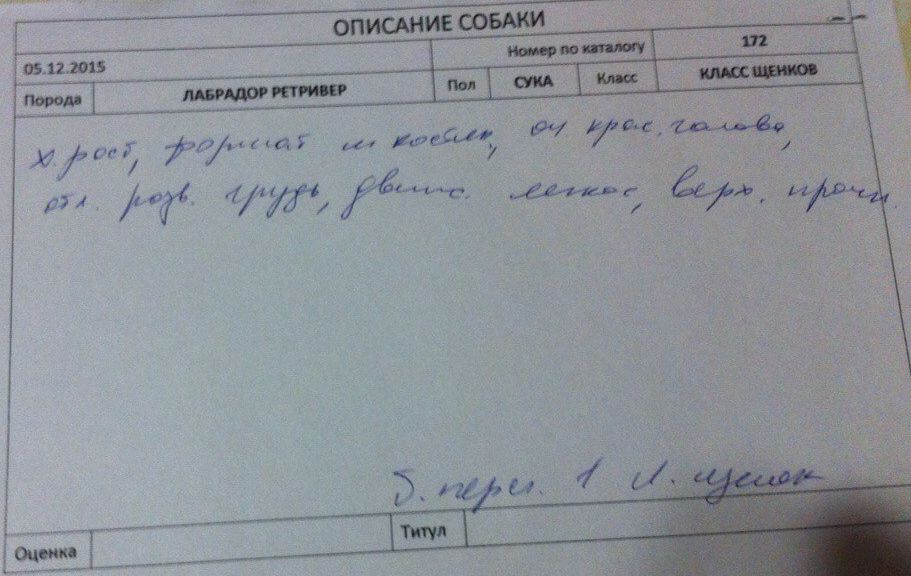 ОПИСАНИЕ СОБАКИ
05.12.2015 Номер по каталогу 172
Порода ЛАБРАДОР РЕТРИВЕР Пол СУКА Класс КЛАСС ЩЕНКОВ
х. рост, формат и костяк, оч крас. голова,
отл. разв. грудь, движ. легкие, верх. прочн.
б. персп. 1 Л. щенок
Оценка Титул